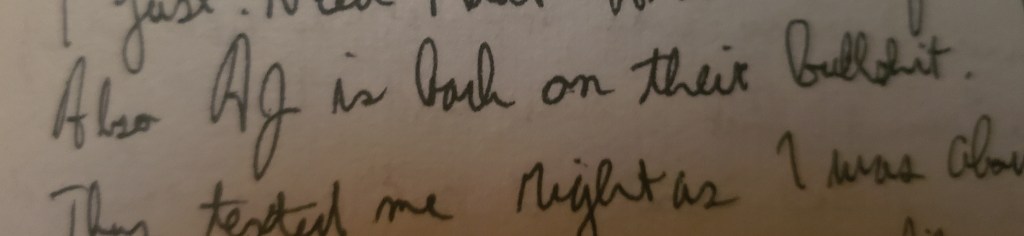 I just
Also AJ is back on their bullshit.
They texted me right as I was abou